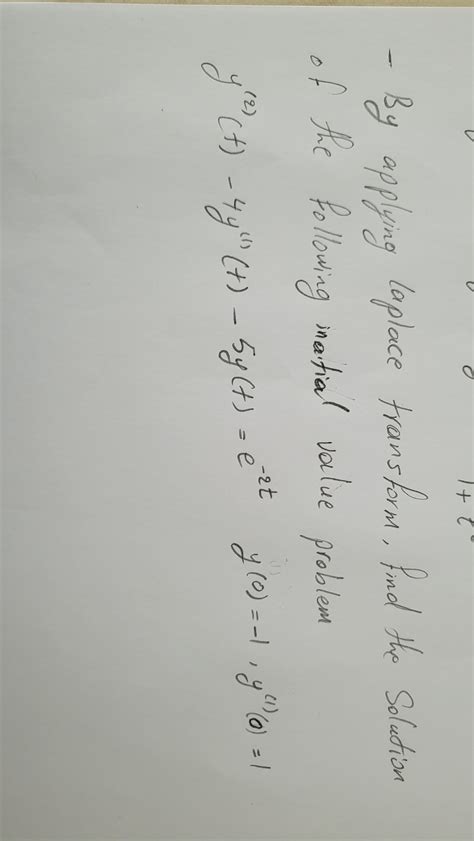 1+t²
- By applying laplace transform, find the Solution
of the following inatial value problem
y⁽²⁾(t) - 4y⁽¹⁾(t) - 5y(t) = e⁻²ᵗ y(0) = -1, y⁽¹⁾(0) = 1